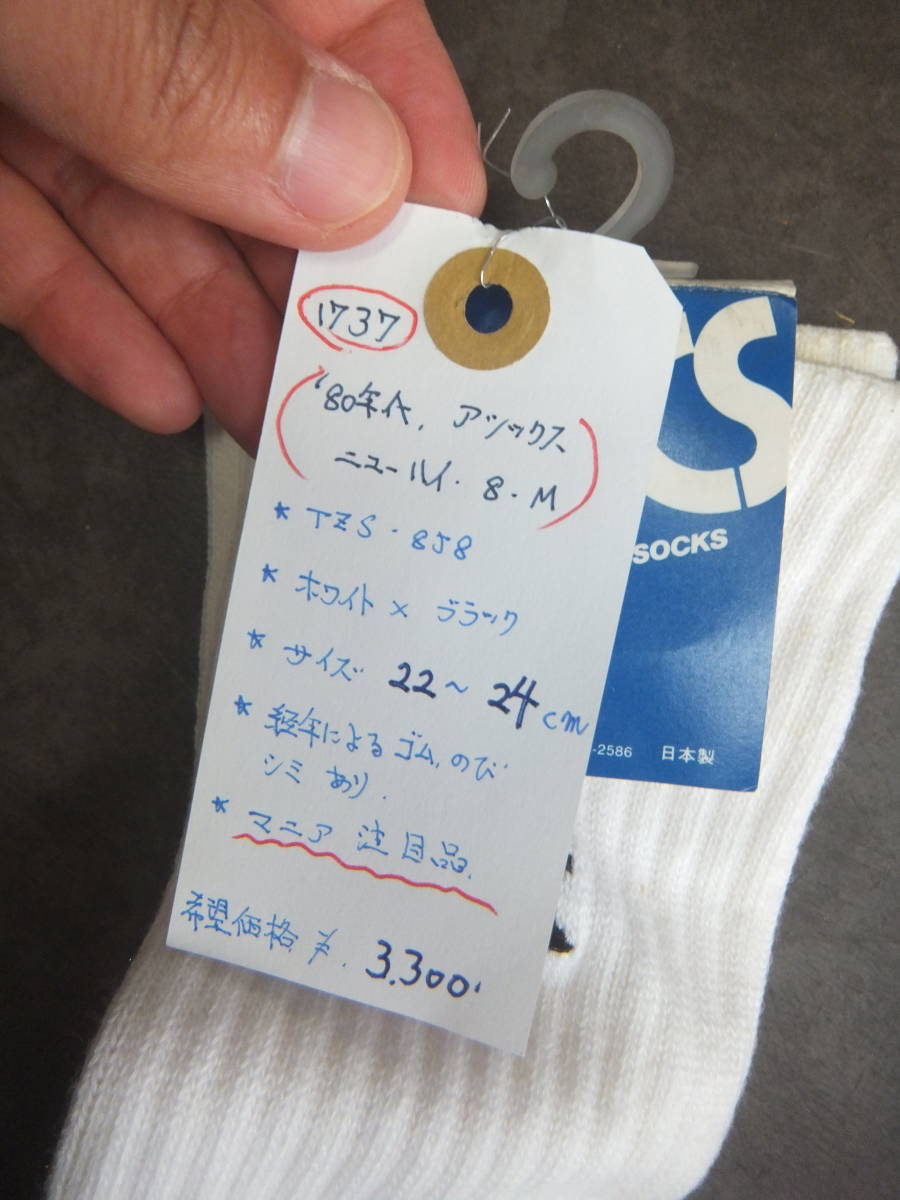 1737
'80年代. アシックス
ニューハイ. 8. M
* TZS-858
* ホワイト × ブラック
* サイズ 22～24cm
* 経年によるゴム, のび
シミ あり.
* マニア 注目品.
希望価格 ¥. 3.300.
CS
SOCKS
-2586 日本製